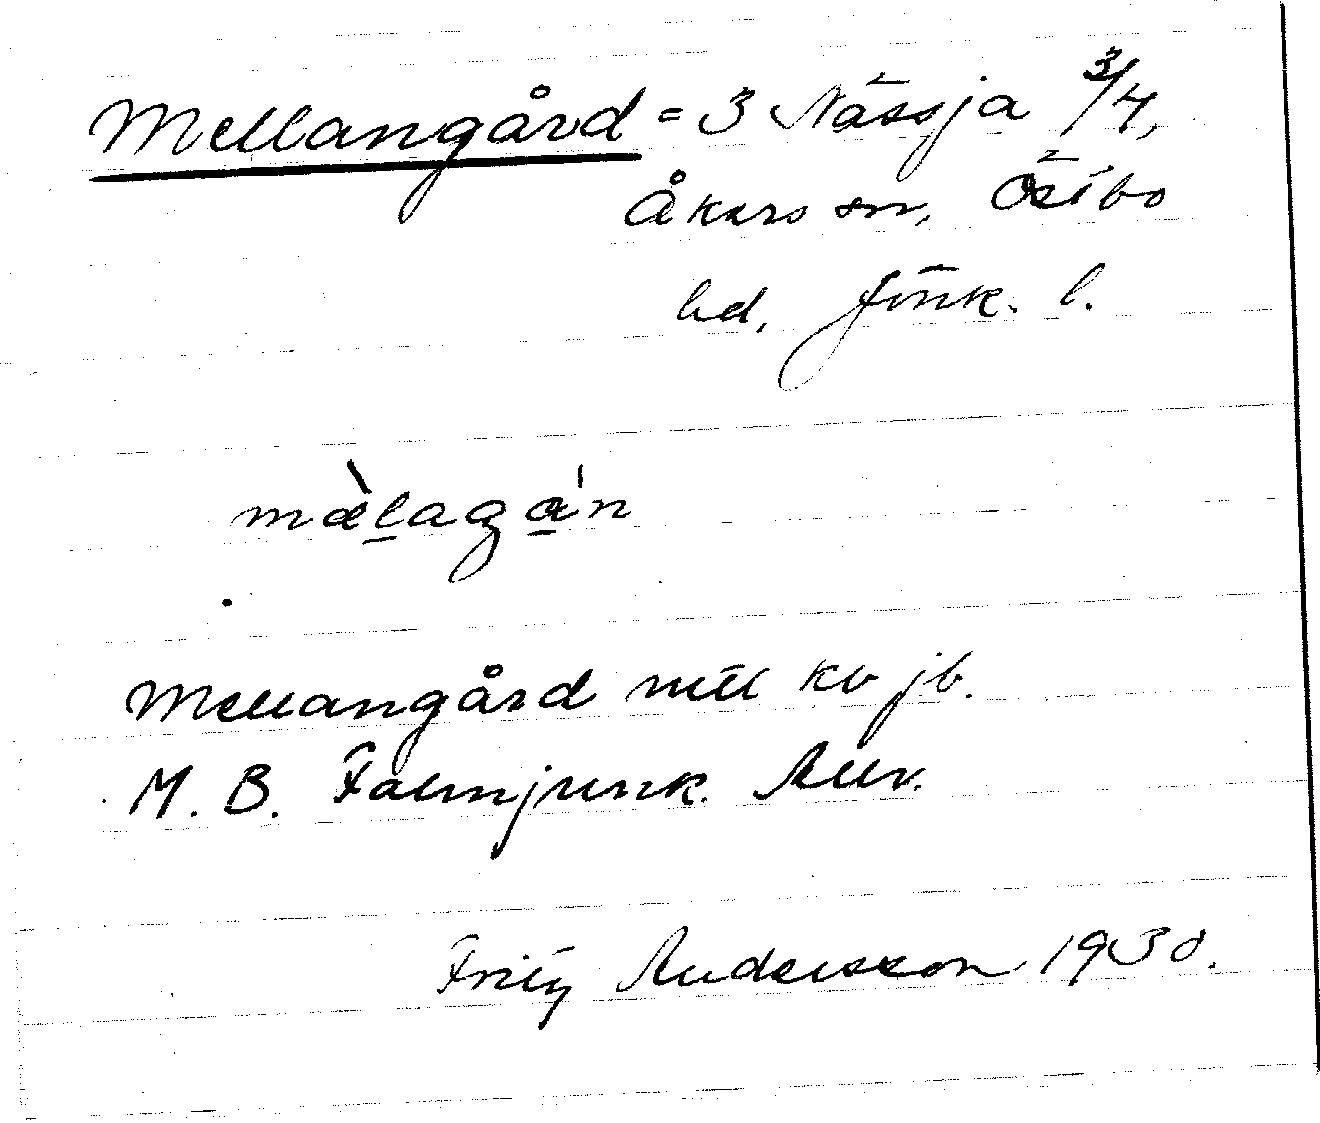 Mellangård = 3 Nässja 3/4,
Åkers sn, Östbo
hd, Jönk. l.
mæ̀lagá̱n
Mellangård mtl kr jb.
M. B. Fanmjunk. Allv.
Fritz Andersson 1930.